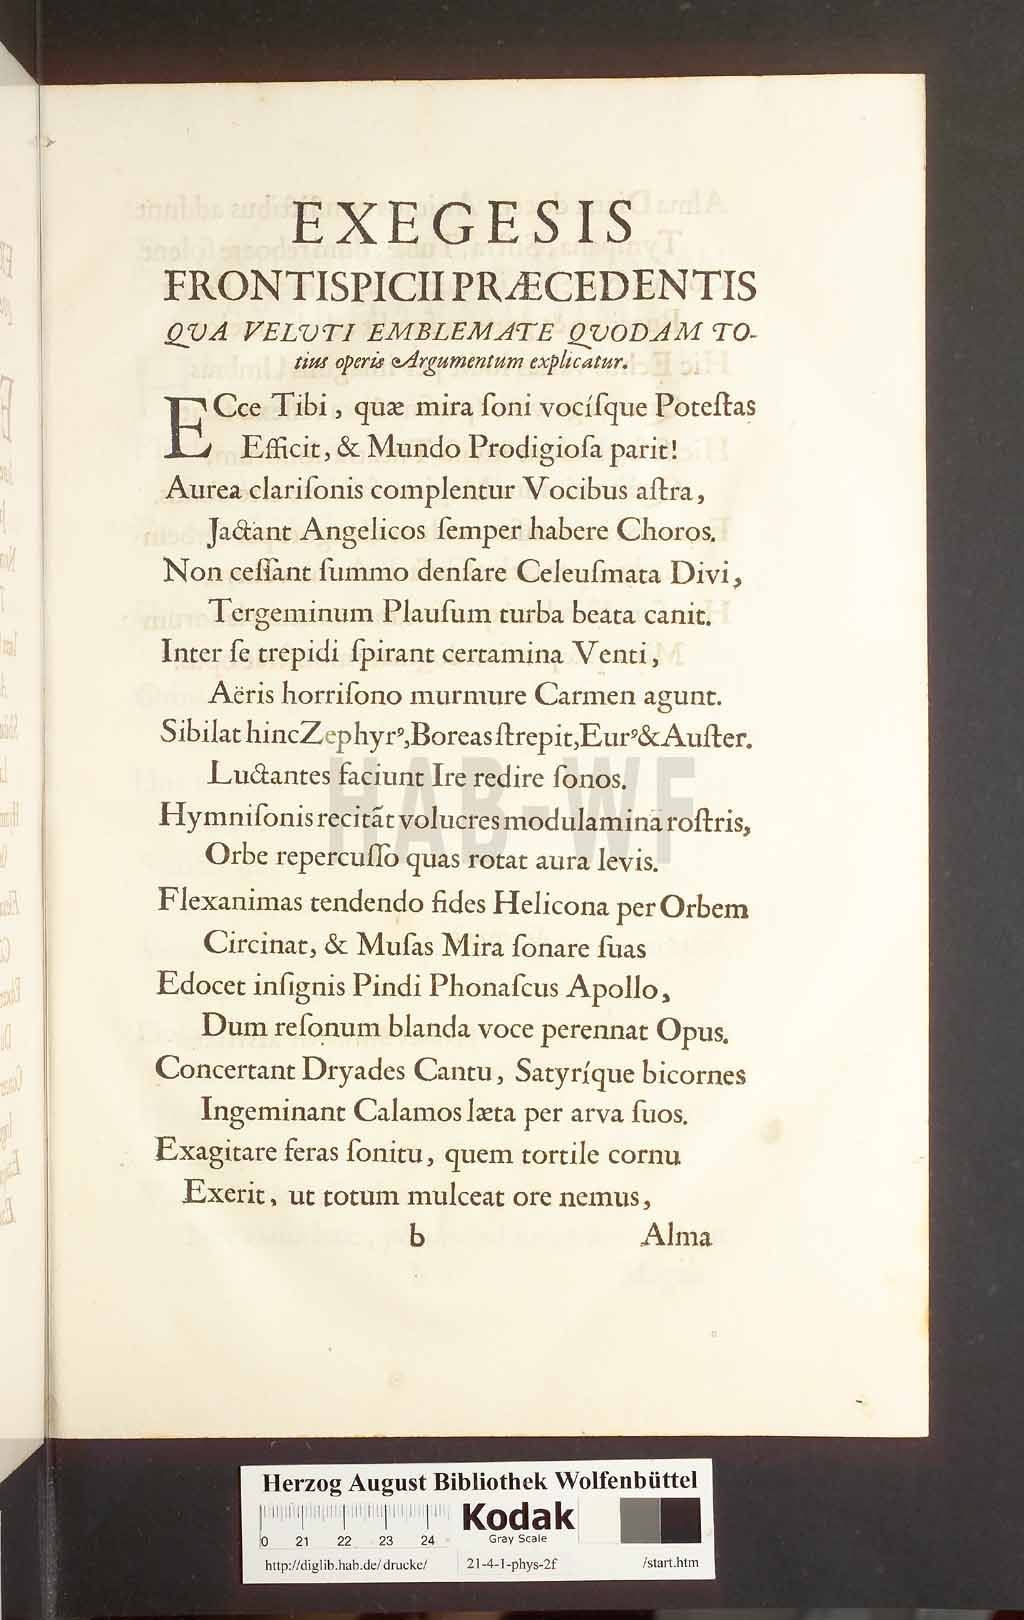 EXEGESIS
FRONTISPICII PRÆCEDENTIS
QVA VELVTI EMBLEMATE QVODAM TO-
tius operis Argumentum explicatur.
ECce Tibi, quæ mira ſoni vocíſque Poteſtas
Efficit, & Mundo Prodigioſa parit!
Aurea clariſonis complentur Vocibus aſtra,
Jactant Angelicos ſemper habere Choros.
Non ceſſant ſummo denſare Celeuſmata Divi,
Tergeminum Plauſum turba beata canit.
Inter ſe trepidi ſpirant certamina Venti,
Aëris horriſono murmure Carmen agunt.
Sibilat hinc Zephyrꝰ, Boreas ſtrepit, Eurꝰ & Auſter.
Luctantes faciunt Ire redire ſonos.
Hymniſonis recitãt volucres modulamina roſtris,
Orbe repercuſſo quas rotat aura levis.
Flexanimas tendendo fides Helicona per Orbem
Circinat, & Muſas Mira ſonare ſuas
Edocet inſignis Pindi Phonaſcus Apollo,
Dum reſonum blanda voce perennat Opus.
Concertant Dryades Cantu, Satyríque bicornes
Ingeminant Calamos læta per arva ſuos.
Exagitare feras ſonitu, quem tortile cornu
Exerit, ut totum mulceat ore nemus,
b Alma
HAB-WF
Herzog August Bibliothek Wolfenbüttel
Kodak
Gray Scale
0 21 22 23 24
http://diglib.hab.de/drucke/ 21-4-1-phys-2f /start.htm